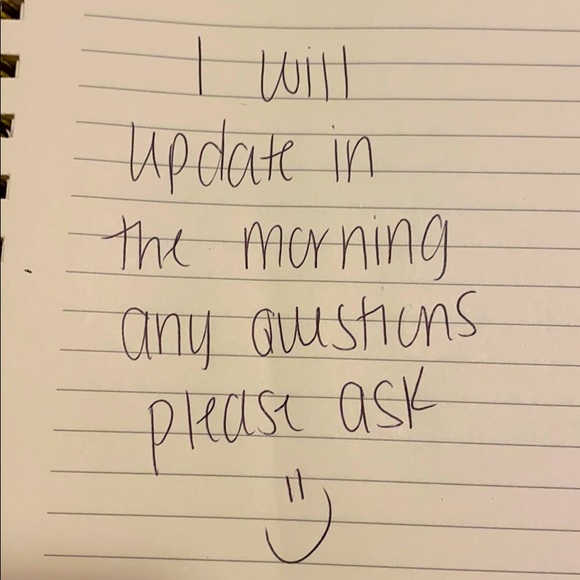 I will
update in
the morning
any questions
please ask